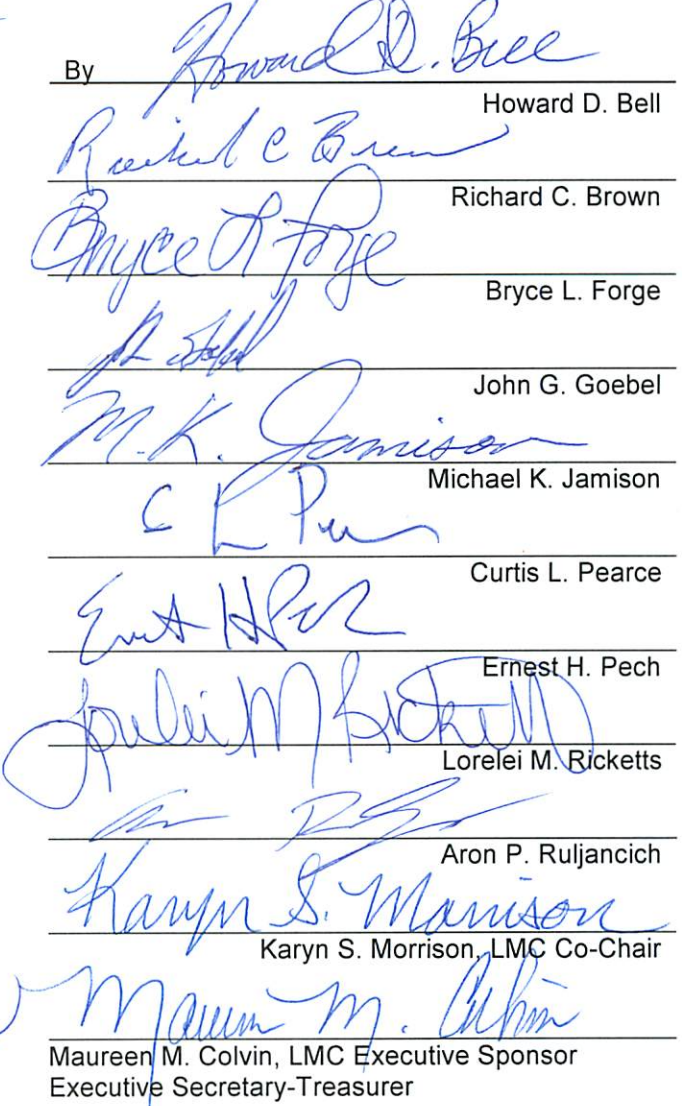 By Howard D. Bell
Howard D. Bell
Richard C Brown
Richard C. Brown
Bryce L Forge
Bryce L. Forge
John G. Goebel
M.K. Jamison
Michael K. Jamison
C L
Curtis L. Pearce
Ernest H. Pech
Lorelei M Ricketts
Lorelei M. Ricketts
Aron P. Ruljancich
Karyn S. Morrison
Karyn S. Morrison, LMC Co-Chair
Maureen M. Colvin
Maureen M. Colvin, LMC Executive Sponsor
Executive Secretary-Treasurer